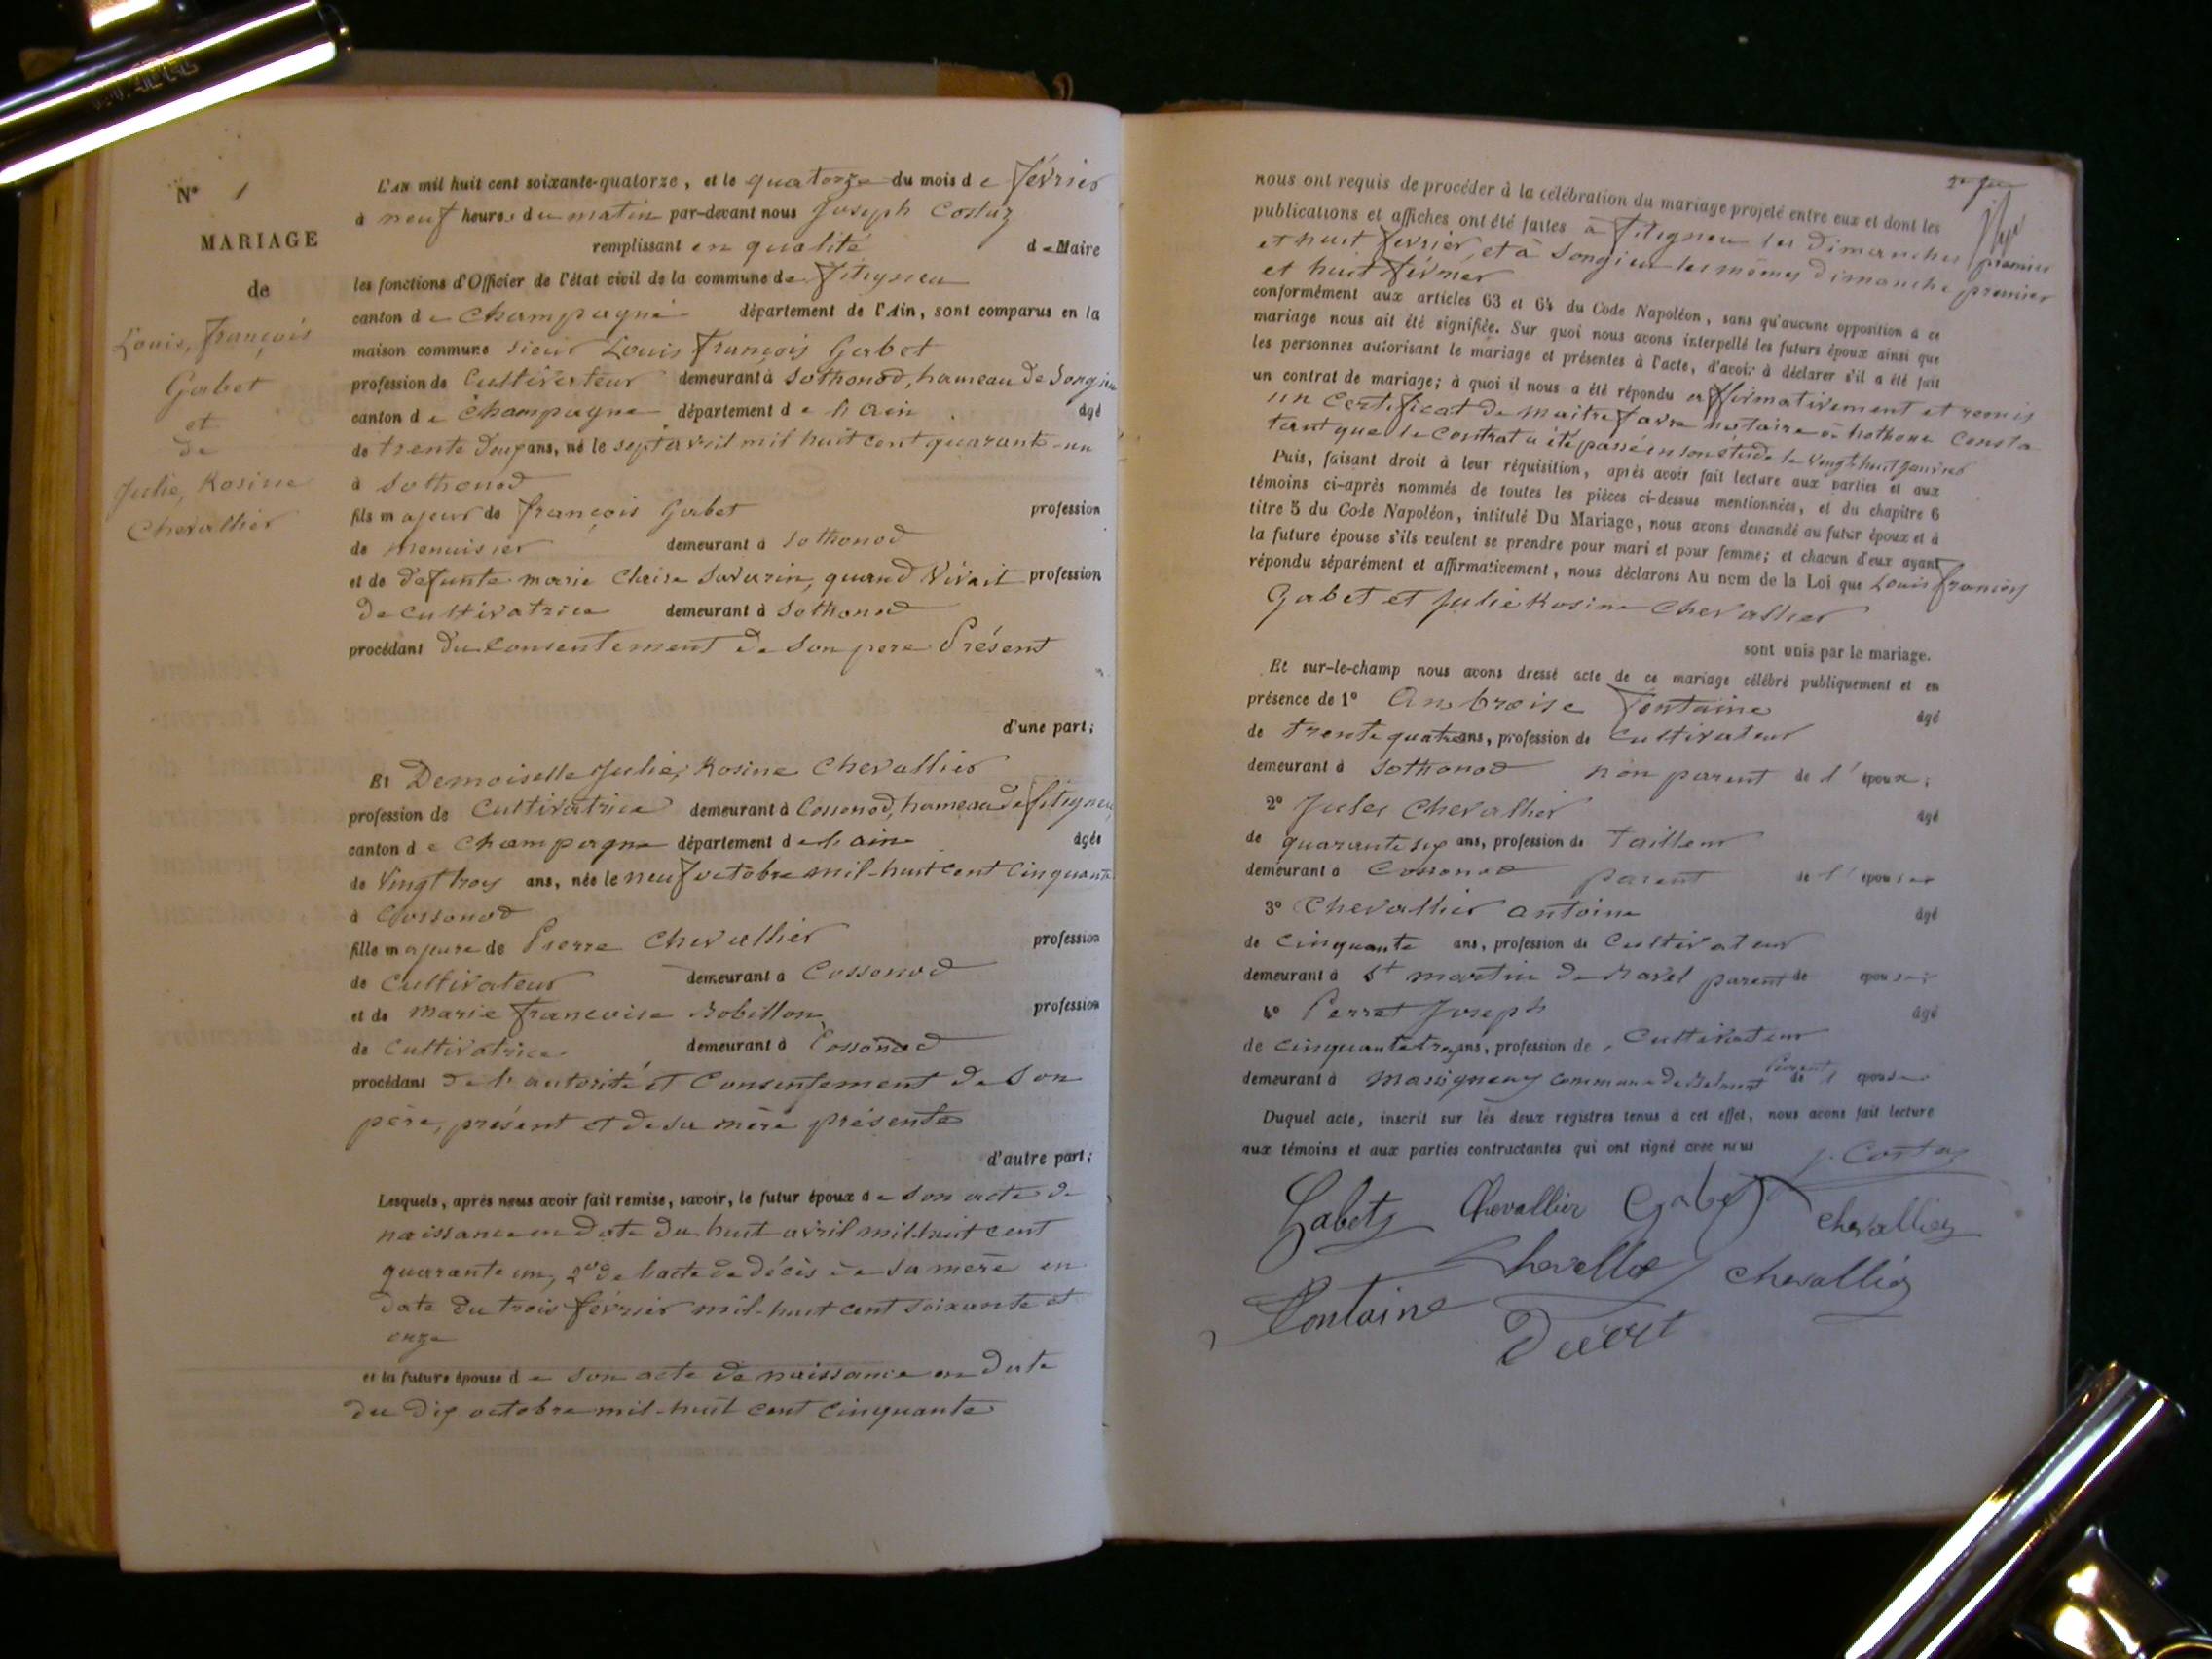 N° 1
MARIAGE
de
Louis, François
Gabet
et
de
Julie, Rosine
Chevallier
L'an mil huit cent soixante-quatorze, et le quatorze du mois de février
à neuf heures du matin par-devant nous Joseph Costaz
remplissant en qualité de Maire
les fonctions d'Officier de l'état civil de la commune de fitignieu
canton de Champagne département de l'Ain, sont comparus en la
maison commune sieur Louis François Gabet
profession de Cultivateur demeurant à Sothonod, hameau de Songieu
canton de Champagne département de l'ain âgé
de trente deux ans, né le sept avril mil huit cent quarante-un
à Sothonod
fils majeur de françois Gabet profession
de menuisier demeurant à Sothonod
et de défunte marie Claire Savarin, quand Vivait profession
de cultivatrice demeurant à Sothonod
procédant du Consentement de Son pere Présent
d'une part;
Et Demoiselle Julie, Rosine Chevallier
profession de Cultivatrice demeurant à Cossonod, hameau de fitignieu
canton de Champagne département de l'ain âgée
de Vingt troys ans, née le neuf octobre mil-huit cent Cinquante
à Cossonod
fille majeure de Pierre Chevallier profession
de Cultivateur demeurant à Cossonod
et de Marie françoise Bobillon profession
de Cultivatrice demeurant à Cossonod
procédant de l'autorité et Consentement de Son
père, présent et de sa mère présente
d'autre part;
Lesquels, après nous avoir fait remise, savoir, le futur époux de Son acte de
naissance en date du huit avril mil-huit cent
quarante un, 2º de l'acte de décès de Sa mère en
date du trois février mil-huit cent soixante et
onze
et la future épouse de Son acte de naissance en date
du dix octobre mil-huit cent Cinquante
nous ont requis de procéder à la célébration du mariage projeté entre eux et dont les
publications et affiches ont été faites à fitignieu les Dimanches premier
et huit février, et à Songieu les mêmes dimanche premier
et huit février
conformément aux articles 63 et 64 du Code Napoléon, sans qu'aucune opposition à ce
mariage nous ait été signifiée. Sur quoi nous avons interpellé les futurs époux ainsi que
les personnes autorisant le mariage et présentes à l'acte, d'avoir à déclarer s'il a été fait
un contrat de mariage; à quoi il nous a été répondu affirmativement et remis
un Certificat de maitre favre notaire à hothone Consta
tant que le Contrat a été passé en son étude le vingt huit janvier
Puis, faisant droit à leur réquisition, après avoir fait lecture aux parties et aux
témoins ci-après nommés de toutes les pièces ci-dessus mentionnées, et du chapitre 6
titre 5 du Code Napoléon, intitulé Du Mariage, nous avons demandé au futur époux et à
la future épouse s'ils veulent se prendre pour mari et pour femme; et chacun d'eux ayant
répondu séparément et affirmativement, nous déclarons Au nom de la Loi que Louis françois
Gabet et Julie Rosine Chevallier
sont unis par le mariage.
Et sur-le-champ nous avons dressé acte de ce mariage célébré publiquement et en
présence de 1° Ambroise Fontaine âgé
de trente quatre ans, profession de Cultivateur
demeurant à Sothonod non parent de l'époux;
2° Jules Chevallier âgé
de quarante six ans, profession de Tailleur
demeurant à Cossonod parent de l'épouse
3° Chevallier antoine âgé
de Cinquante ans, profession de Cultivateur
demeurant à St martin de Bavel parent de épouse
4° Perret Joseph âgé
de cinquante troys ans, profession de Cultivateur
demeurant à Massigneux commune de Belmont parent de l épouse
Duquel acte, inscrit sur les deux registres tenus à cet effet, nous avons fait lecture
aux témoins et aux parties contractantes qui ont signé avec nous J. Costaz
Gabet Chevallier Gabet chevallier
Chevallier chevallier
Fontaine